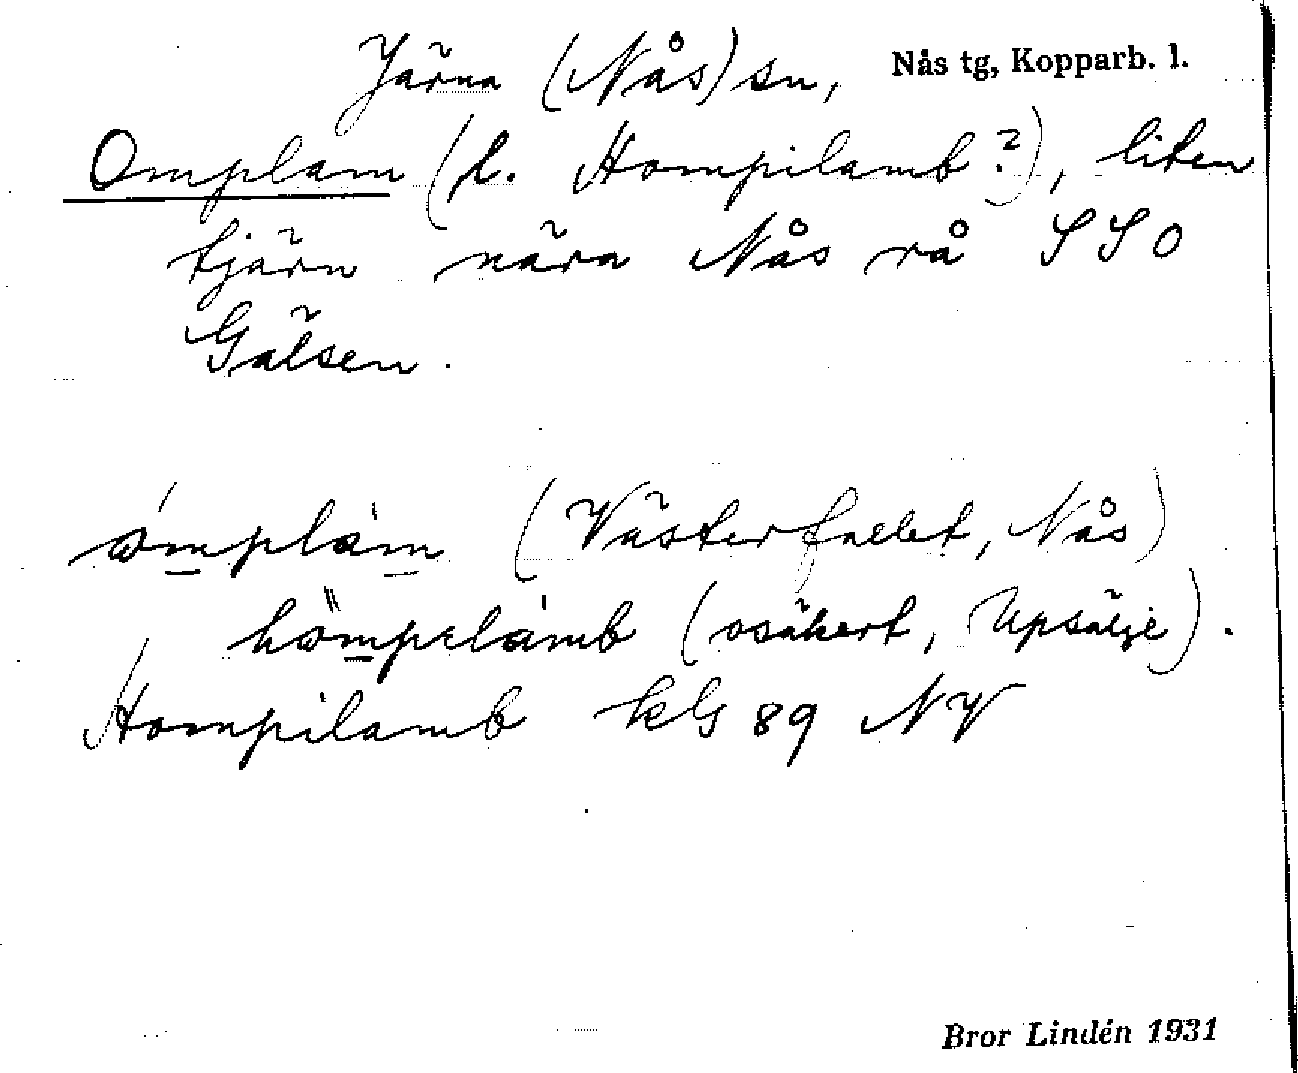 Järna (Nås) sn, Nås tg, Kopparb. l.
Omplam (l. Hompilamb?), liten
tjärn nära Nås rå SSO
Gälsen.
ómplàm (Västerfallet, Nås)
hömpelàmb (osäkert, Upsälje).
Hompilamb kG 89 NV
Bror Lindén 1931